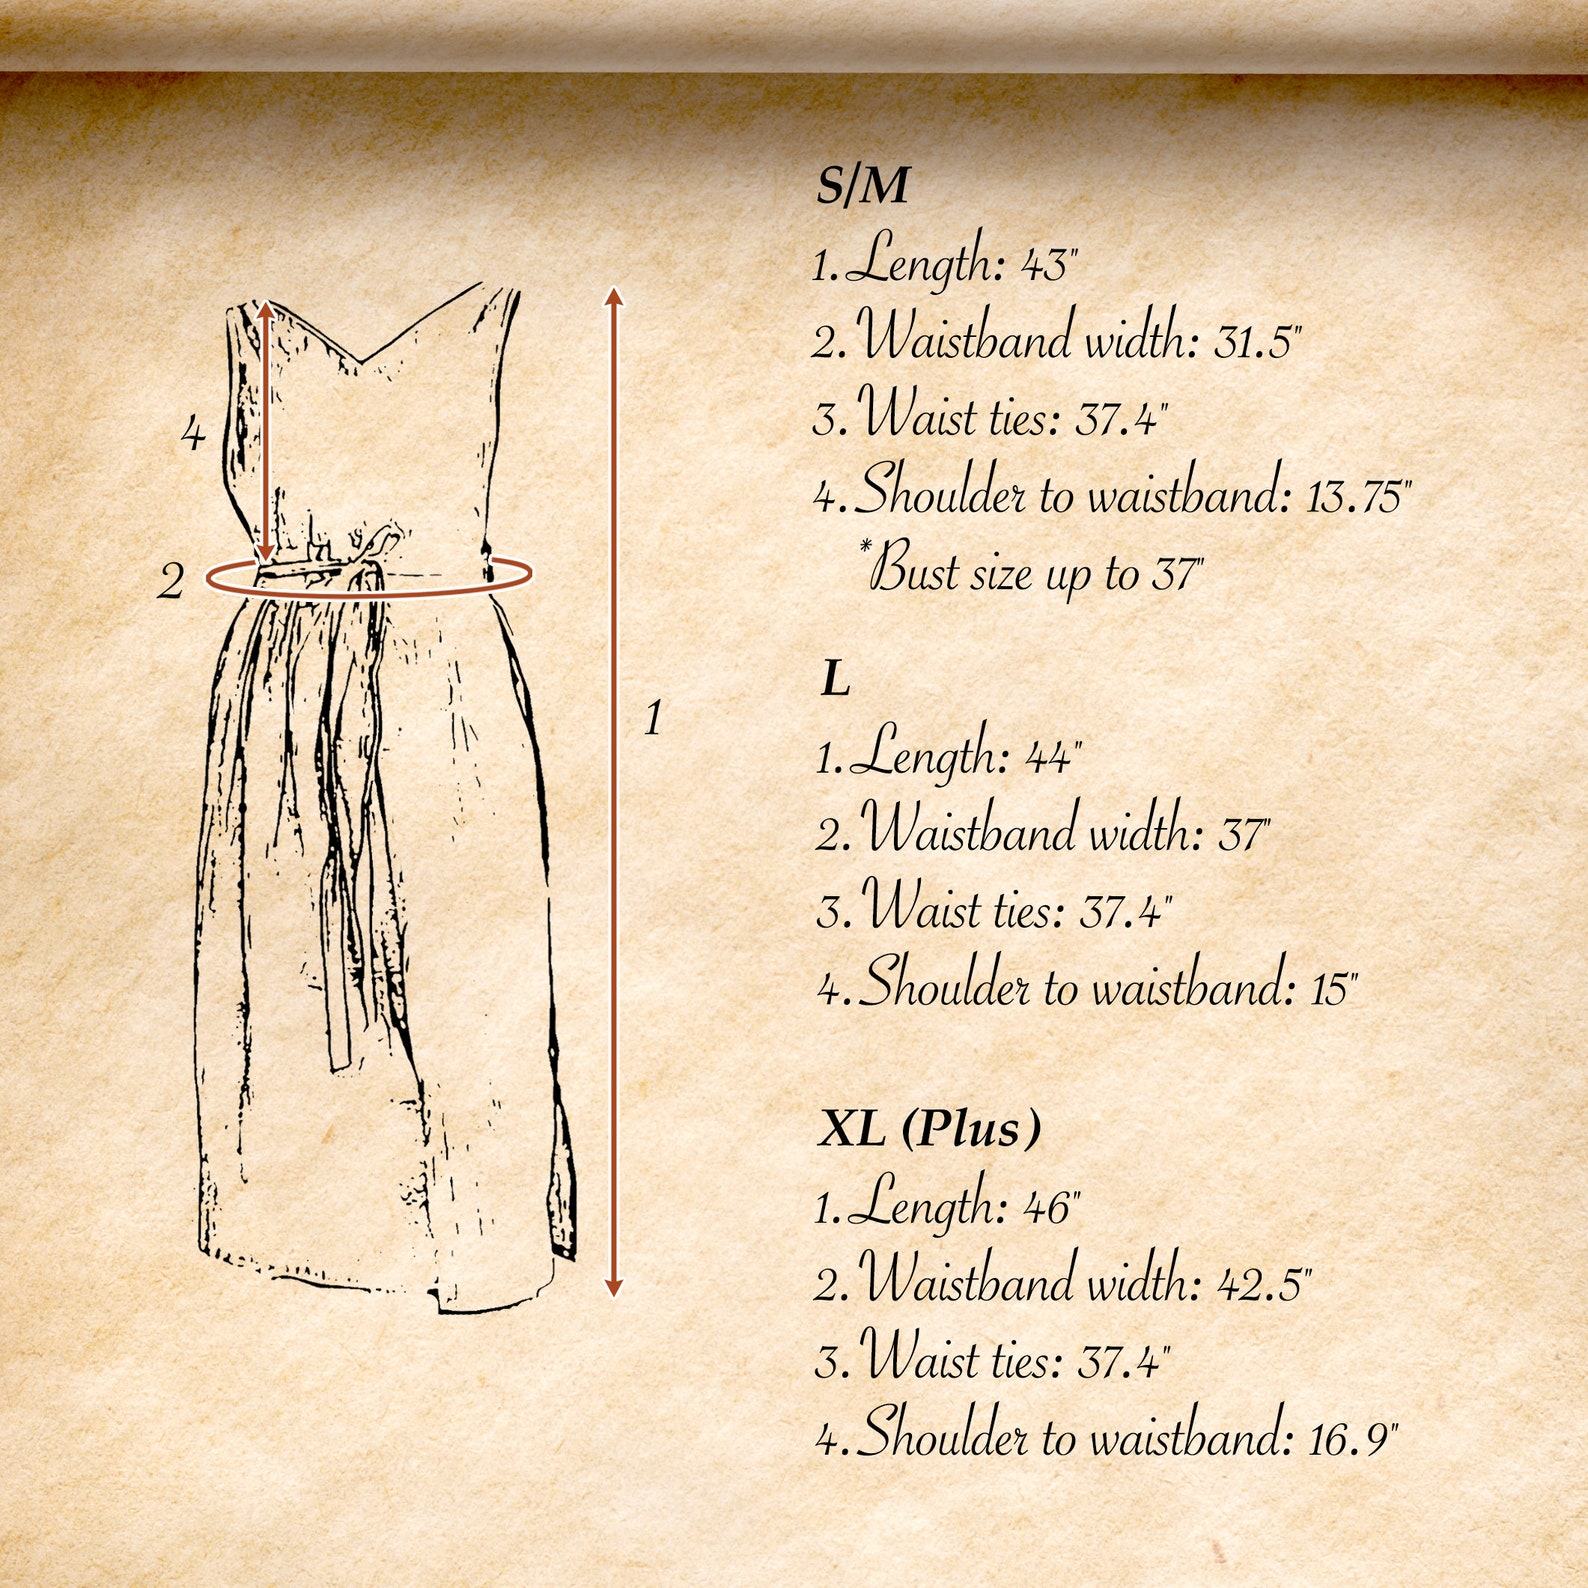 S/M
1. Length: 43"
2. Waistband width: 31.5"
3. Waist ties: 37.4"
4. Shoulder to waistband: 13.75"
*Bust size up to 37"
L
1. Length: 44"
2. Waistband width: 37"
3. Waist ties: 37.4"
4. Shoulder to waistband: 15"
XL (Plus)
1. Length: 46"
2. Waistband width: 42.5"
3. Waist ties: 37.4"
4. Shoulder to waistband: 16.9"
4
2
1